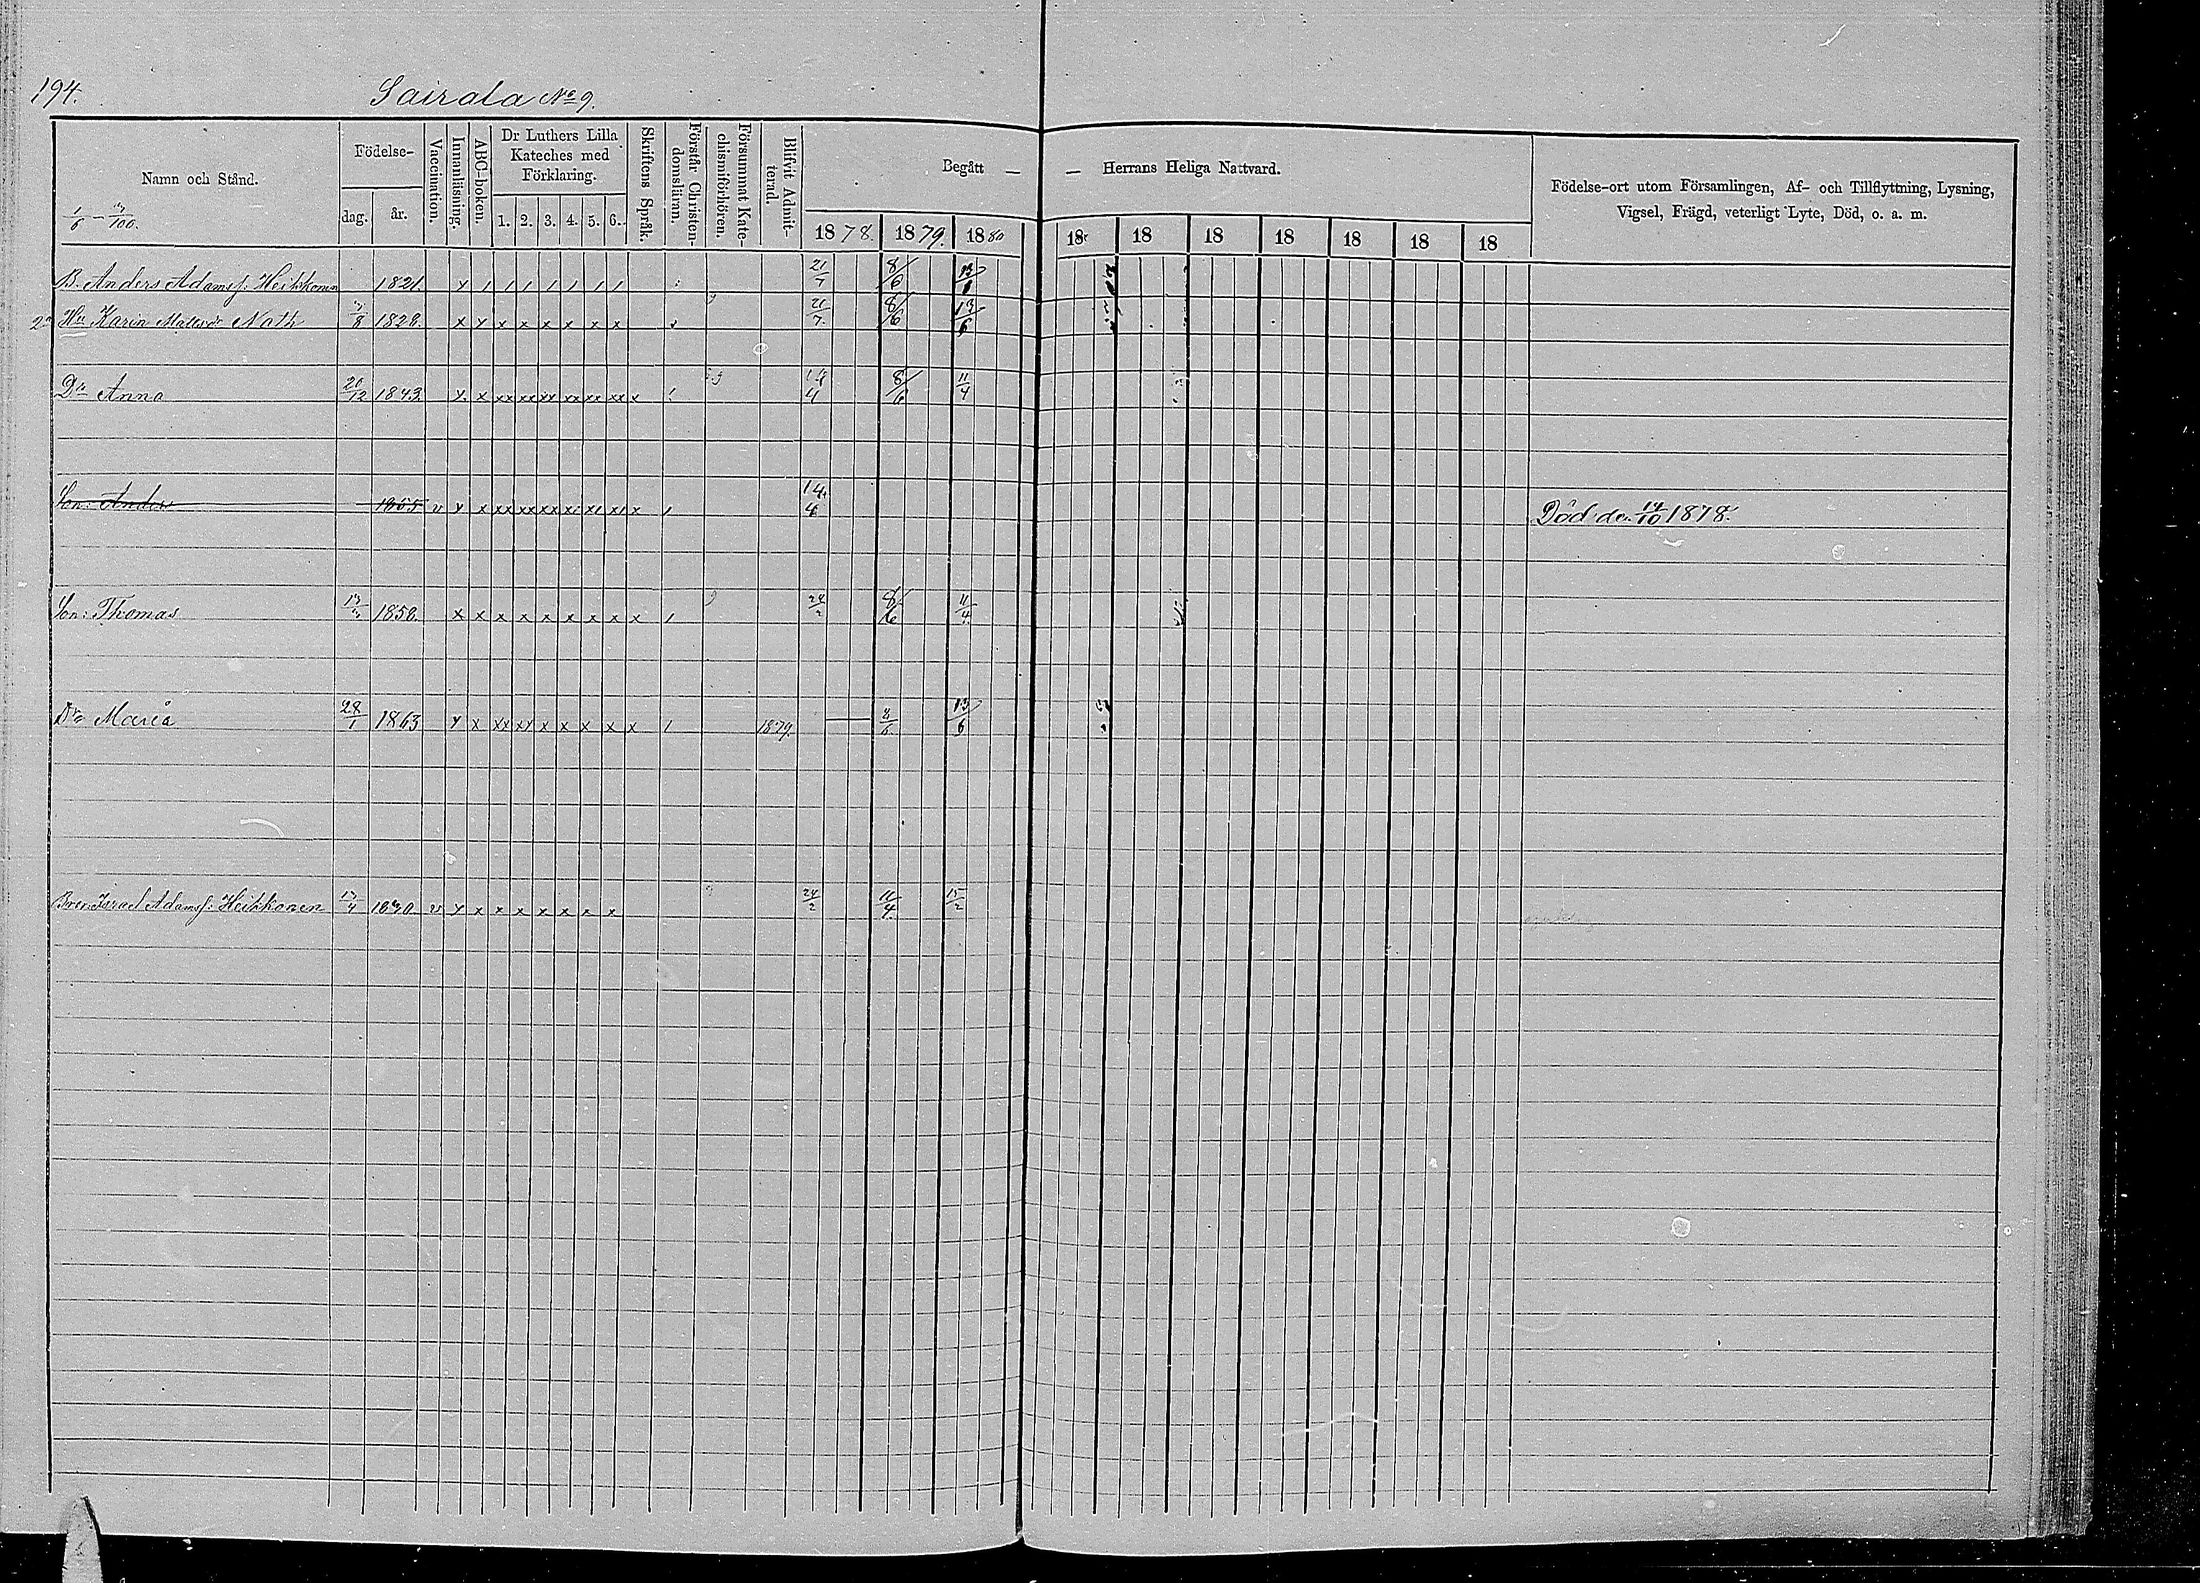 194.
Sairala No 9.
Namn och Stånd.
Födelse-
dag.
år.
Vaccination.
Innanläsning.
ABC-boken.
Dr Luthers Lilla Kateches med Förklaring.
1. 2. 3. 4. 5. 6.
Skriftens Språk.
Förstår Christendomsläran.
Försummat Katechismiförhören.
Blifvit Admitterad.
Begått — — Herrans Heliga Nattvard.
1878. 1879. 1880 18 18 18 18 18 18 18
Födelse-ort utom Församlingen, Af- och Tillflyttning, Lysning,
Vigsel, Frägd, veterligt Lyte, Död, o. a. m.
B. Anders Adamsf. Heikkonen 1821 / / / / / / / 21/7 8/6 13/6
Hu Karin Mattsdr 1828 x x x x x x x x 21/7 8/6 13/6
Dr Anna 1843 x x xx xx xx xx xx xx x / 8/6 11/4
Son: Anders 1855 v x x xx xx xx x / 14/4 Död den 1878.
Son: Thomas 1858. x x x x x x x x x / 24/2 8/6 11/4
Dr Maria 28/1 1863 x x xx xx x x x x x / 1879. — 8/6 13/6
Israel Adamsf. Heikkonen 1830 v x x x x x x x x 24/2 11/4 15/2